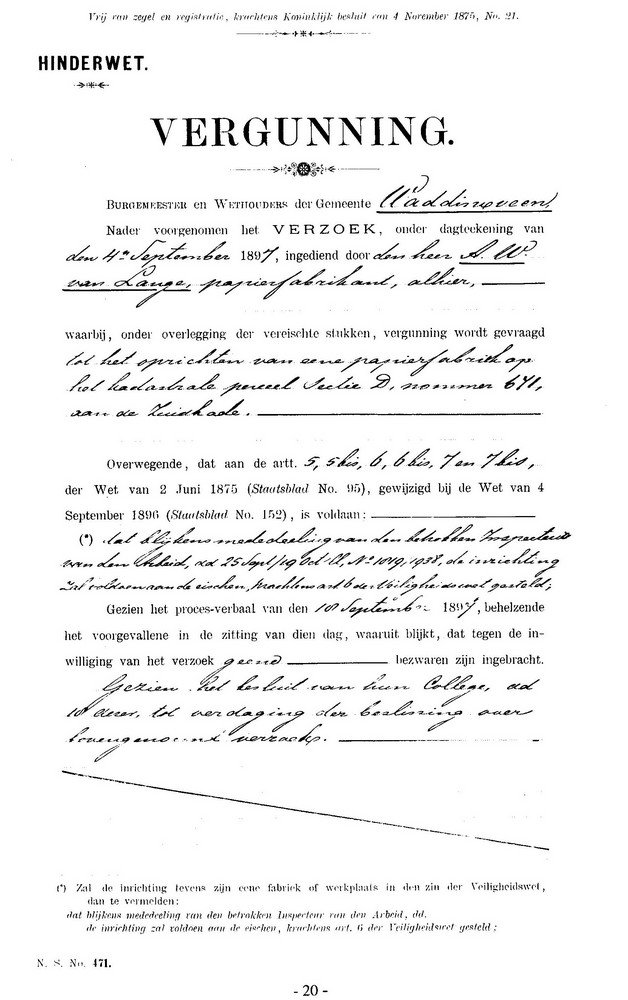 Vrij van zegel en registratie, krachtens Koninklijk besluit van 4 November 1875, No. 21.
HINDERWET.
VERGUNNING.
BURGEMEESTER en WETHOUDERS der Gemeente Waddinxveen,
Nader voorgenomen het VERZOEK, onder dagteekening van
den 4en September 1897, ingediend door den heer A. W.
van Lange, papierfabrikant, alhier,
waarbij, onder overlegging der vereischte stukken, vergunning wordt gevraagd
tot het oprichten van eene papierfabriek op
het kadastrale perceel Sectie D, nommer 671,
aan de Zuidkade.
Overwegende, dat aan de artt. 5, 5bis, 6, 6bis, 7 en 7bis,
der Wet van 2 Juni 1875 (Staatsblad No. 95), gewijzigd bij de Wet van 4
September 1896 (Staatsblad No. 152), is voldaan:
(*) dat blijkens mededeeling van den betrokken Inspecteur
van den Arbeid, dd 25 Sept/19 Oct. ll, No 1819/1938, de inrichting
zal voldoen aan de eischen, krachtens art 6 der Veiligheidswet gesteld;
Gezien het proces-verbaal van den 18 September 1897, behelzende
het voorgevallene in de zitting van dien dag, waaruit blijkt, dat tegen de in-
williging van het verzoek geene bezwaren zijn ingebracht.
Gezien het besluit van hun College, dd
18 dezer, tot verdaging der beslissing over
bovengenoemd verzoek.
(*) Zal de inrichting tevens zijn eene fabriek of werkplaats in den zin der Veiligheidswet,
dan te vermelden:
dat blijkens mededeeling van den betrokken Inspecteur van den Arbeid, dd.
de inrichting zal voldoen aan de eischen, krachtens art. 6 der Veiligheidswet gesteld;
N. S. No. 471.
- 20 -